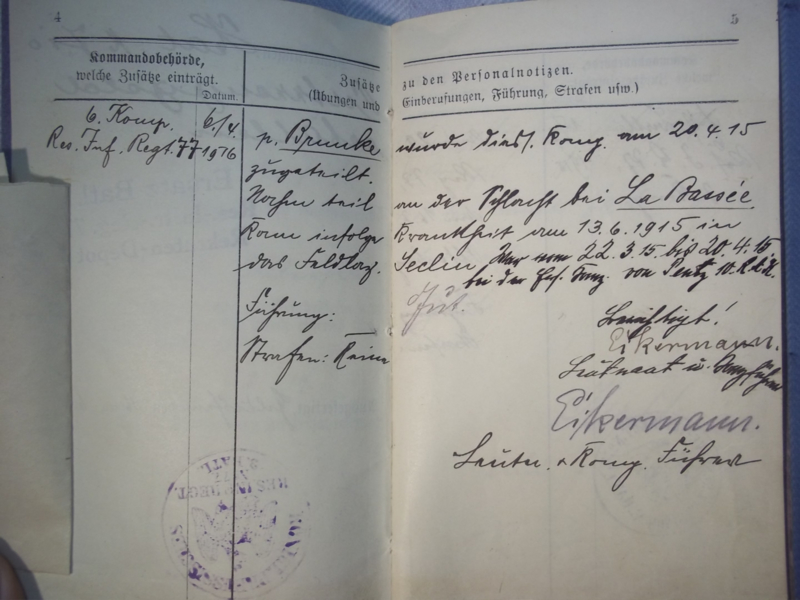 4
5
Kommandobehörde,
welche Zusätze einträgt.
Datum
Zusätze
zu den Personalnotizen.
(Übungen und
Einberufungen, Führung, Strafen usw.)
6. Komp.
Res. Inf. Regt. 77
6./4.
1916
p. Brunke wurde dies. Komp. am 20.4.15
zugeteilt.
Nahm teil an der Schlacht bei La Bassée
Kam infolge Krankheit am 13.6.1915 in
das Feldlaz. Seclin War vom 22.3.15 bis 20.4.15
bei der von 10. R.d.K.
Führung: Gut.
Strafen: Keine
Berichtigt!
Eikermann.
Leutnant u. Kompführer
Eikermann.
Leutn. u. Komp. Führer